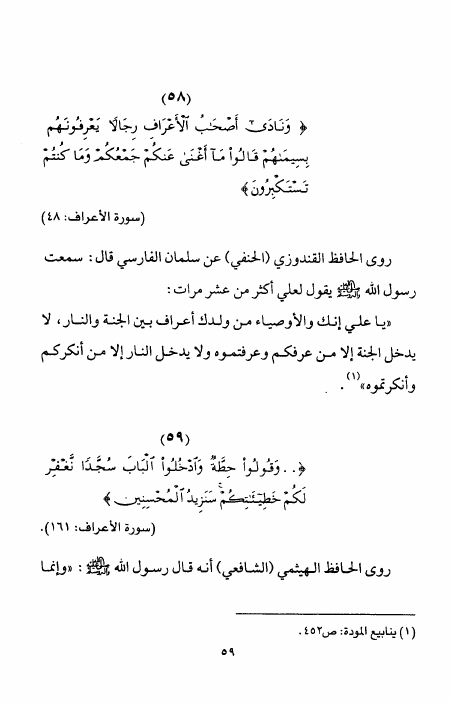 (٥٨)
﴿ وَنَادَىٰٓ أَصْحَٰبُ ٱلْأَعْرَافِ رِجَالًا يَعْرِفُونَهُم
بِسِيمَىٰهُمْ قَالُوا۟ مَآ أَغْنَىٰ عَنكُمْ جَمْعُكُمْ وَمَا كُنتُمْ
تَسْتَكْبِرُونَ ﴾
(سورة الأعراف: ٤٨)
روى الحافظ القندوزي (الحنفي) عن سلمان الفارسي قال: سمعت
رسول الله ﷺ يقول لعلي أكثر من عشر مرات:
«يا علي إنك والأوصياء من ولدك أعراف بين الجنة والنار، لا
يدخل الجنة إلا من عرفكم وعرفتموه ولا يدخل النار إلا من أنكركم
وأنكرتموه»(١).
(٥٩)
﴿.. وَقُولُوا۟ حِطَّةٌ وَٱدْخُلُوا۟ ٱلْبَابَ سُجَّدًا نَّغْفِرْ
لَكُمْ خَطِيٓـَٰٔتِكُمْ سَنَزِيدُ ٱلْمُحْسِنِينَ ﴾
(سورة الأعراف: ١٦١).
روى الحافظ الهيثمي (الشافعي) أنه قال رسول الله ﷺ: «وإنما
(١) ينابيع المودة: ص٤٥٢.
٥٩